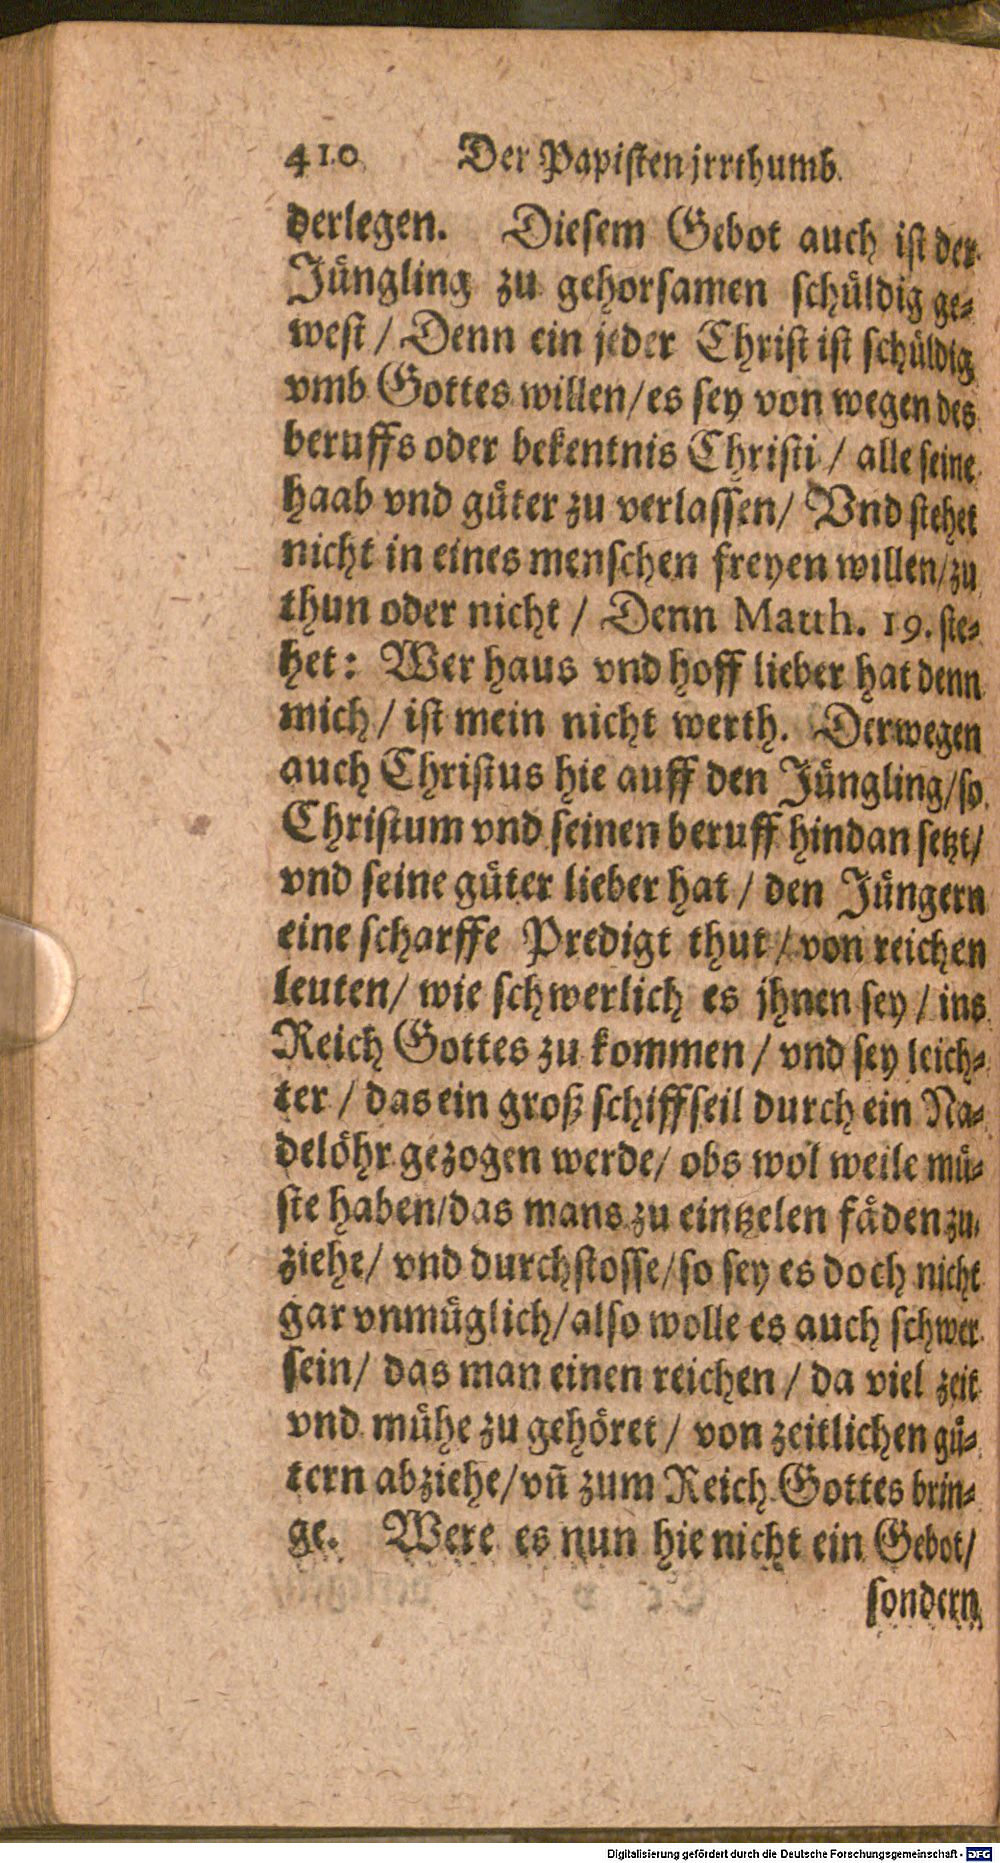 410 Der Papisten jrrthumb.
derlegen. Diesem Gebot auch ist der
Jüngling zu gehorsamen schüldig ge-
west / Denn ein jeder Christ ist schüldig
vmb Gottes willen/ es sey von wegen des
beruffs oder bekentnis Christi / alle seine
haab vnd güter zu verlassen/ Vnd stehet
nicht in eines menschen freyen willen/ zu
thun oder nicht / Denn Matth. 19. ste-
het: Wer haus vnd hoff lieber hat denn
mich / ist mein nicht werth. Derwegen
auch Christus hie auff den Jüngling/ so
Christum vnd seinen beruff hindan setzt/
vnd seine güter lieber hat / den Jüngern
eine scharffe Predigt thut / von reichen
leuten/ wie schwerlich es jhnen sey / ins
Reich Gottes zu kommen / vnd sey leich-
ter / das ein groß schiffseil durch ein Na-
delöhr gezogen werde/ obs wol weile mü-
ste haben/das mans zu eintzelen fäden zu-
ziehe/ vnd durchstosse/so sey es doch nicht
gar vnmüglich/also wolle es auch schwer
sein/ das man einen reichen / da viel zeit
vnd mühe zu gehöret / von zeitlichen gü-
tern abziehe/vñ zum Reich Gottes brin-
ge. Were es nun hie nicht ein Gebot/
sondern
Digitalisierung gefördert durch die Deutsche Forschungsgemeinschaft - DFG